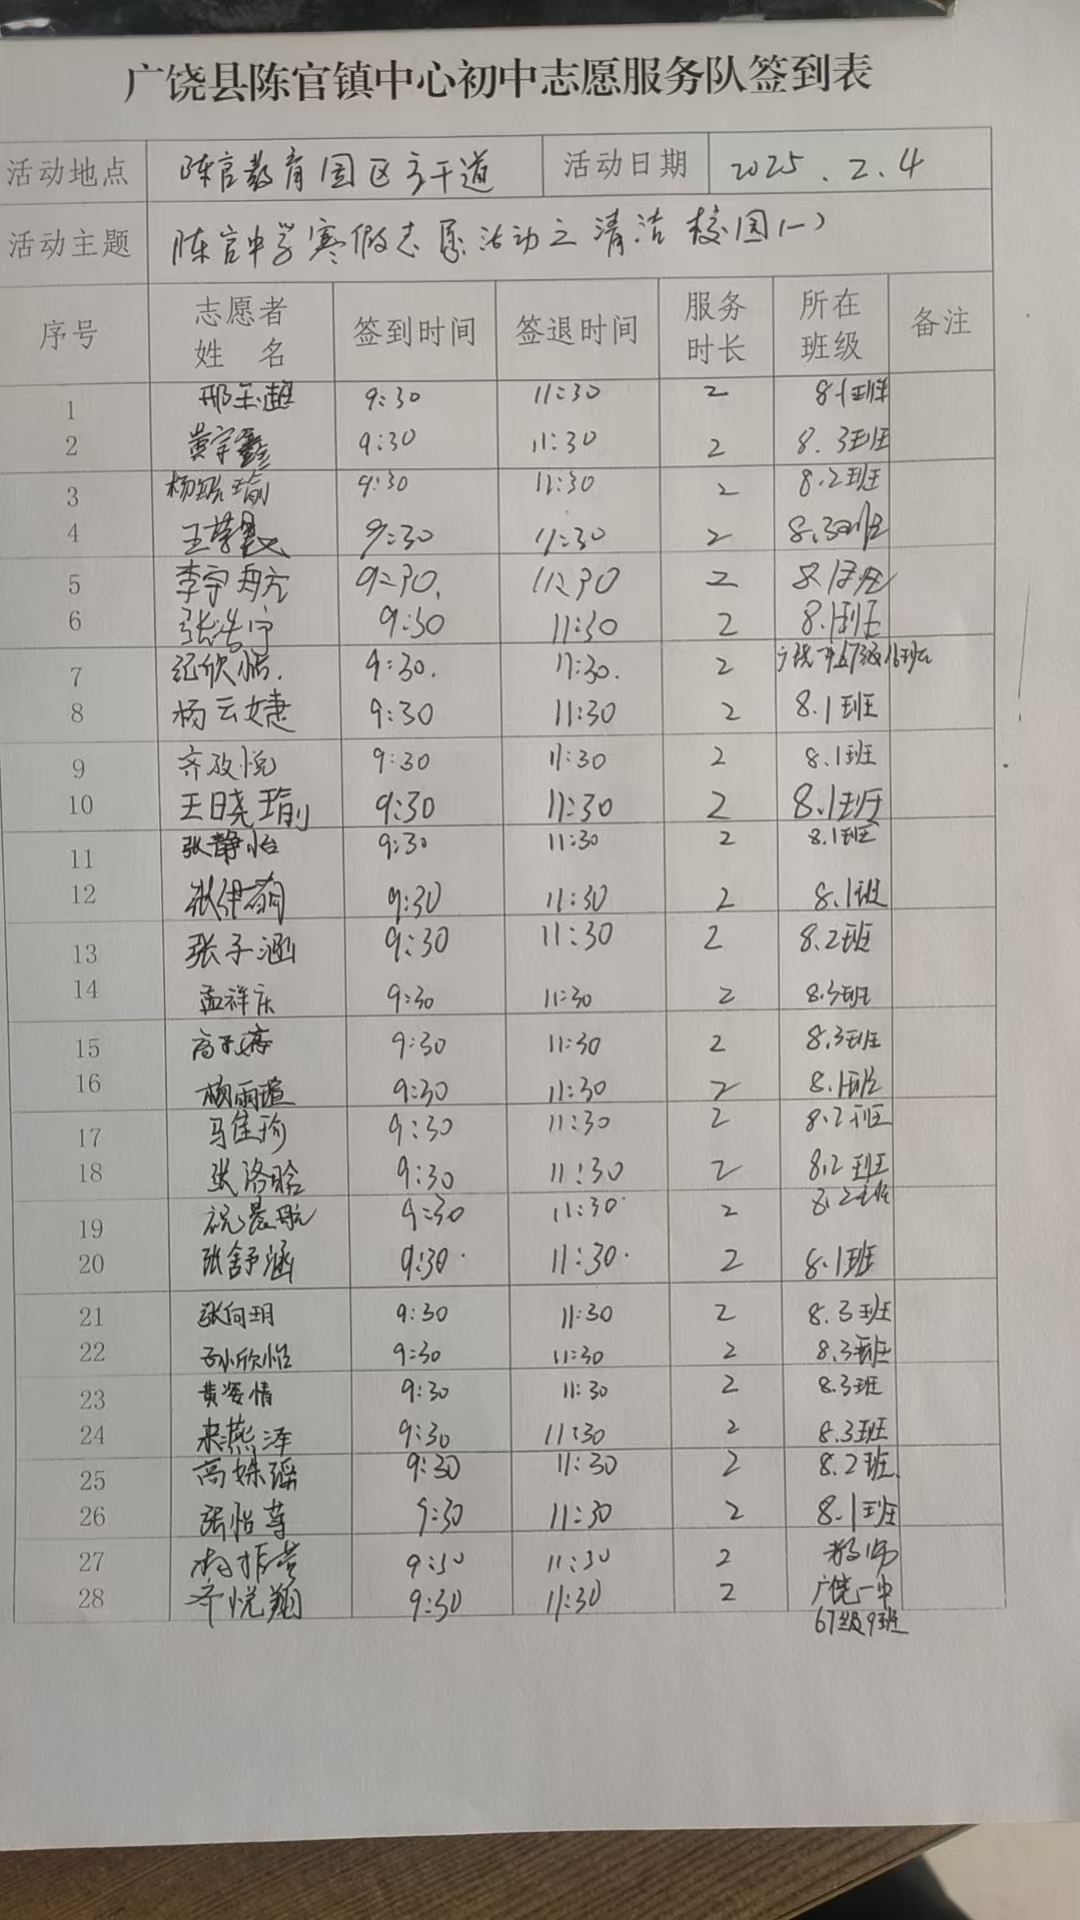 广饶县陈官镇中心初中志愿服务队签到表
活动地点 陈官教育园区主干道 活动日期 2025.2.4
活动主题 陈官中学寒假志愿活动之清洁校园(一)
序号 志愿者姓名 签到时间 签退时间 服务时长 所在班级 备注
1 邢玉超 9:30 11:30 2 8.1班
2 黄宇鑫 9:30 11:30 2 8.3班
3 杨 瑜 9:30 11:30 2 8.2班
4 王 9:30 11:30 2 8.3班
5 李宇航 9:30. 11:30 2 8.1班
6 张浩宁 9:30 11:30 2 8.1班
7 纪欣恬. 9:30. 11:30. 2 广饶一中67级16班
8 杨云婕 9:30 11:30 2 8.1班
9 齐政悦 9:30 11:30 2 8.1班
10 王晓瑜 9:30 11:30 2 8.1班
11 张静怡 9:30 11:30 2 8.1班
12 张伊 9:30 11:30 2 8.1班
13 张子涵 9:30 11:30 2 8.2班
14 孟祥庆 9:30 11:30 2 8.3班
15 高 9:30 11:30 2 8.3班
16 杨雨瑄 9:30 11:30 2 8.1班
17 马佳瑜 9:30 11:30 2 8.2班
18 张洛晗 9:30 11:30 2 8.2班
19 祝晨航 9:30 11:30 2 8.2班
20 张舒涵 9:30 11:30 2 8.1班
21 张向玥 9:30 11:30 2 8.3班
22 孙欣怡 9:30 11:30 2 8.3班
23 黄姿情 9:30 11:30 2 8.3班
24 来燕泽 9:30 11:30 2 8.3班
25 高姝瑶 9:30 11:30 2 8.2班
26 张怡 9:30 11:30 2 8.1班
27 杨振 9:30 11:30 2 教师
28 齐悦翔 9:30 11:30 2 广饶一中
67级9班